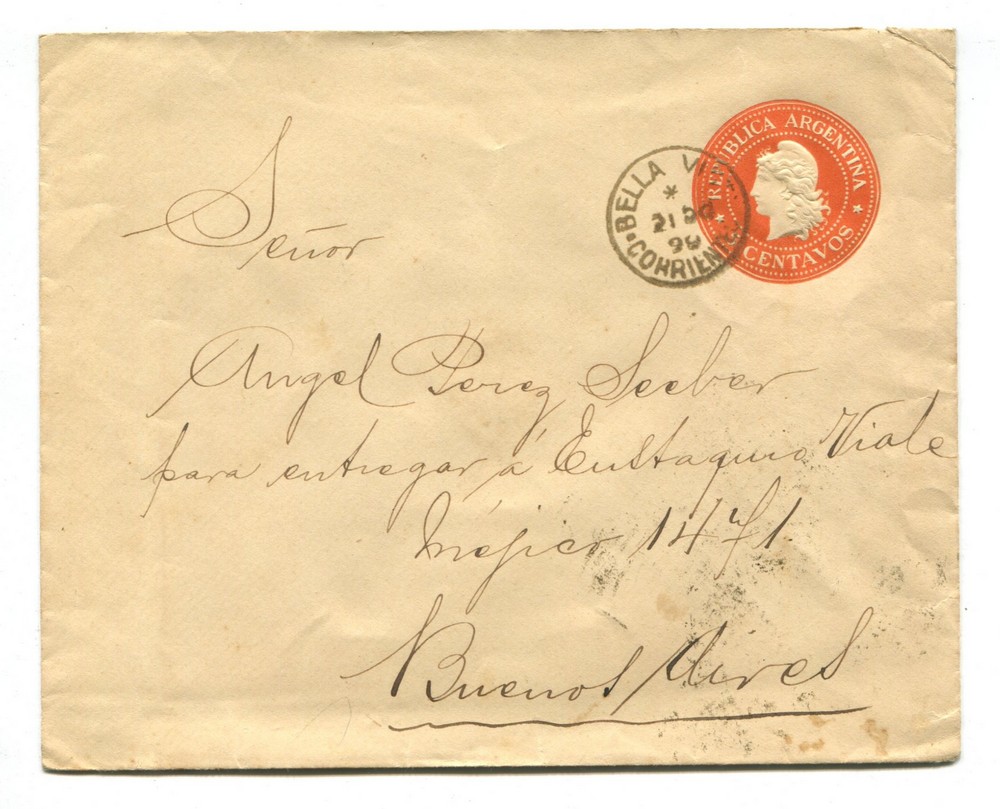 REPÚBLICA ARGENTINA
CENTAVOS
BELLA
21
CORRIENTE
Señor
Angel Perez Seeber
para entregar á Eustaquio Viale
Méjico 1471
Buenos Aires